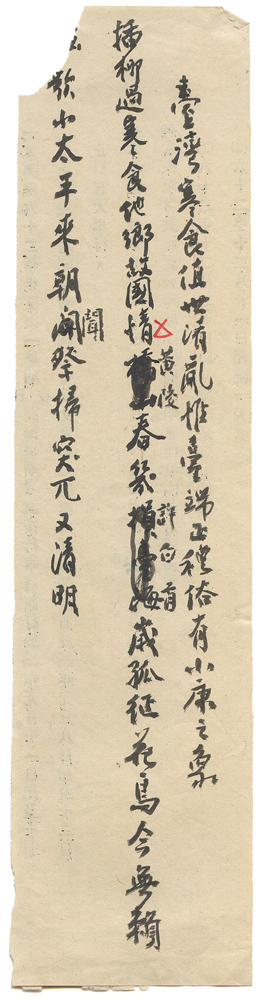 臺灣寒食值世淆亂惟臺端正禮俗有小康之象
插柳過寒食他鄉故國情黃陵春幾許白首歲孤征花鳥今無賴
歡小太平來朝聞祭掃突兀又清明